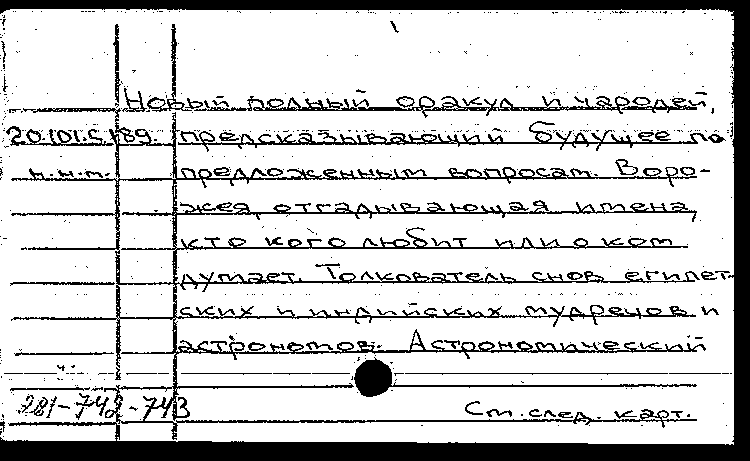 Новый полный оракул и чародей,
20.101.5.189. предсказывающий будущее по
н.н.п. предложенным вопросам. Воро-
жея, отгадывающая имена,
кто кого любит или о ком
думает. Толкователь снов египет-
ских и индийских мудрецов и
астрономов. Астрономический
281-742-743 См. след. карт.